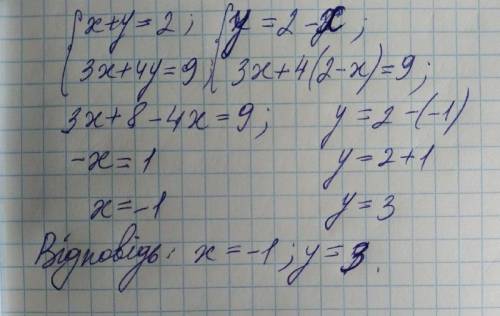 {x+y=2; {y=2-x;
{3x+4y=9; {3x+4(2-x)=9;
3x+8-4x=9; y=2-(-1)
-x=1 y=2+1
x=-1 y=3
Відповідь: x=-1; y=3.